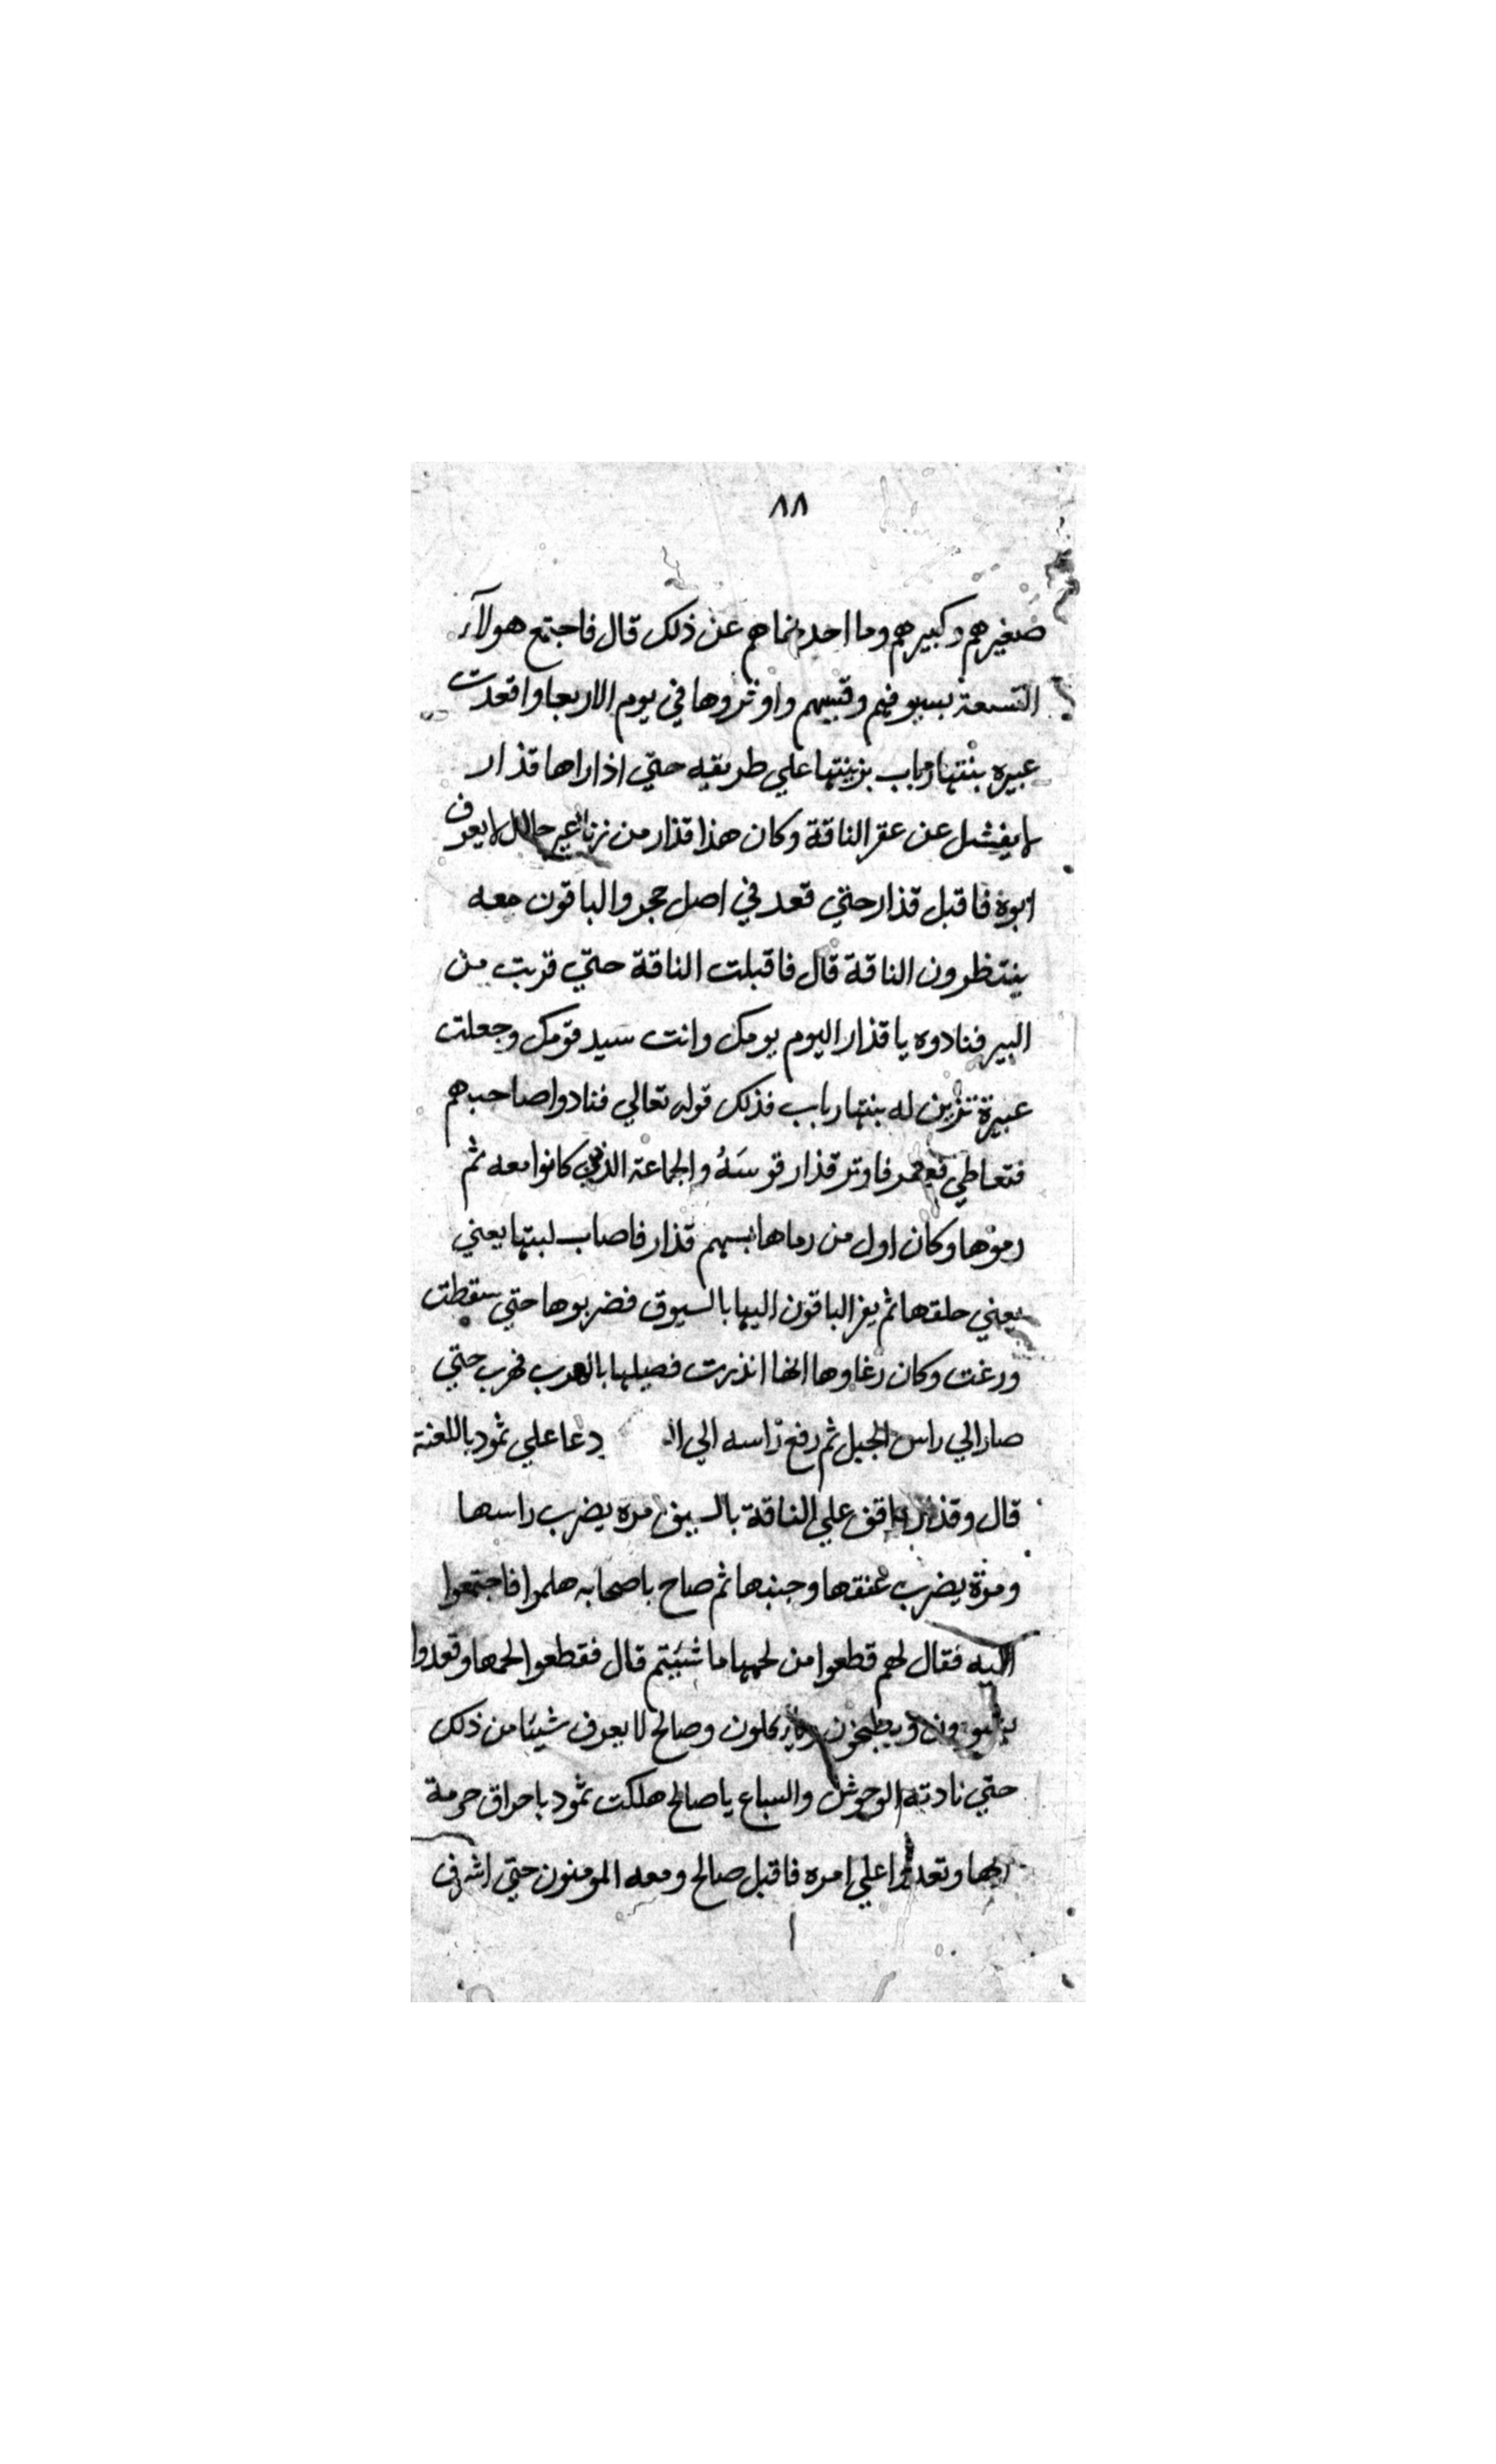 ٨٨
صغيرهم وكبيرهم وما احد نهاهم عن ذلك قال فاجتمع هولآء
التسعة بسيوفهم وقسيهم واوتروها في يوم الاربعا واقعدت
عبيره بنتها رباب بزينتها علي طريقه حتي اذا راها قذار
لا يفشل عن عقر الناقة وكان هذا قذار من زنا غير حلال لا يعرف
ابوه فاقبل قذار حتي قعد في اصل حجر والباقون معه
ينتظرون الناقة قال فاقبلت الناقة حتي قربت من
البير فنادوه يا قذار اليوم يومك وانت سيد قومك وجعلت
عبيرة تزين له بنتها رباب فذلك قوله تعالي فنادوا صاحبهم
فتعاطي فعقر فاوتر قذار قوسه والجماعة الذين كانوا معه ثم
رموها وكان اول من رماها بسهم قذار فاصاب لبتها يعني
يعني حلقها ثم يفز الباقون اليها بالسيوف فضربوها حتي سقطت
ورغت وكان رغاوها انها انذرت فصيلها بالهرب فهرب حتي
صار الي راس الجبل ثم رفع راسه الي دعا علي ثمود باللعنة
قال وقذار واقف علي الناقة بالسيف مره يضرب راسها
ومرة يضرب عنقها وجنبها ثم صاح باصحابه هلموا فاجتمعوا
اليه فقال لهم قطعوا من لحمها ما شيتم قال فقطعوا لحمها وقعدوا
يشوون ويطبخون وياكلون وصالح لا يعرف شيئا من ذلك
حتي نادته الوحوش والسباع يا صالح هلكت ثمود باحراق حرمة
ربها وتعدوا علي امره فاقبل صالح ومعه المومنون حتي اشرف